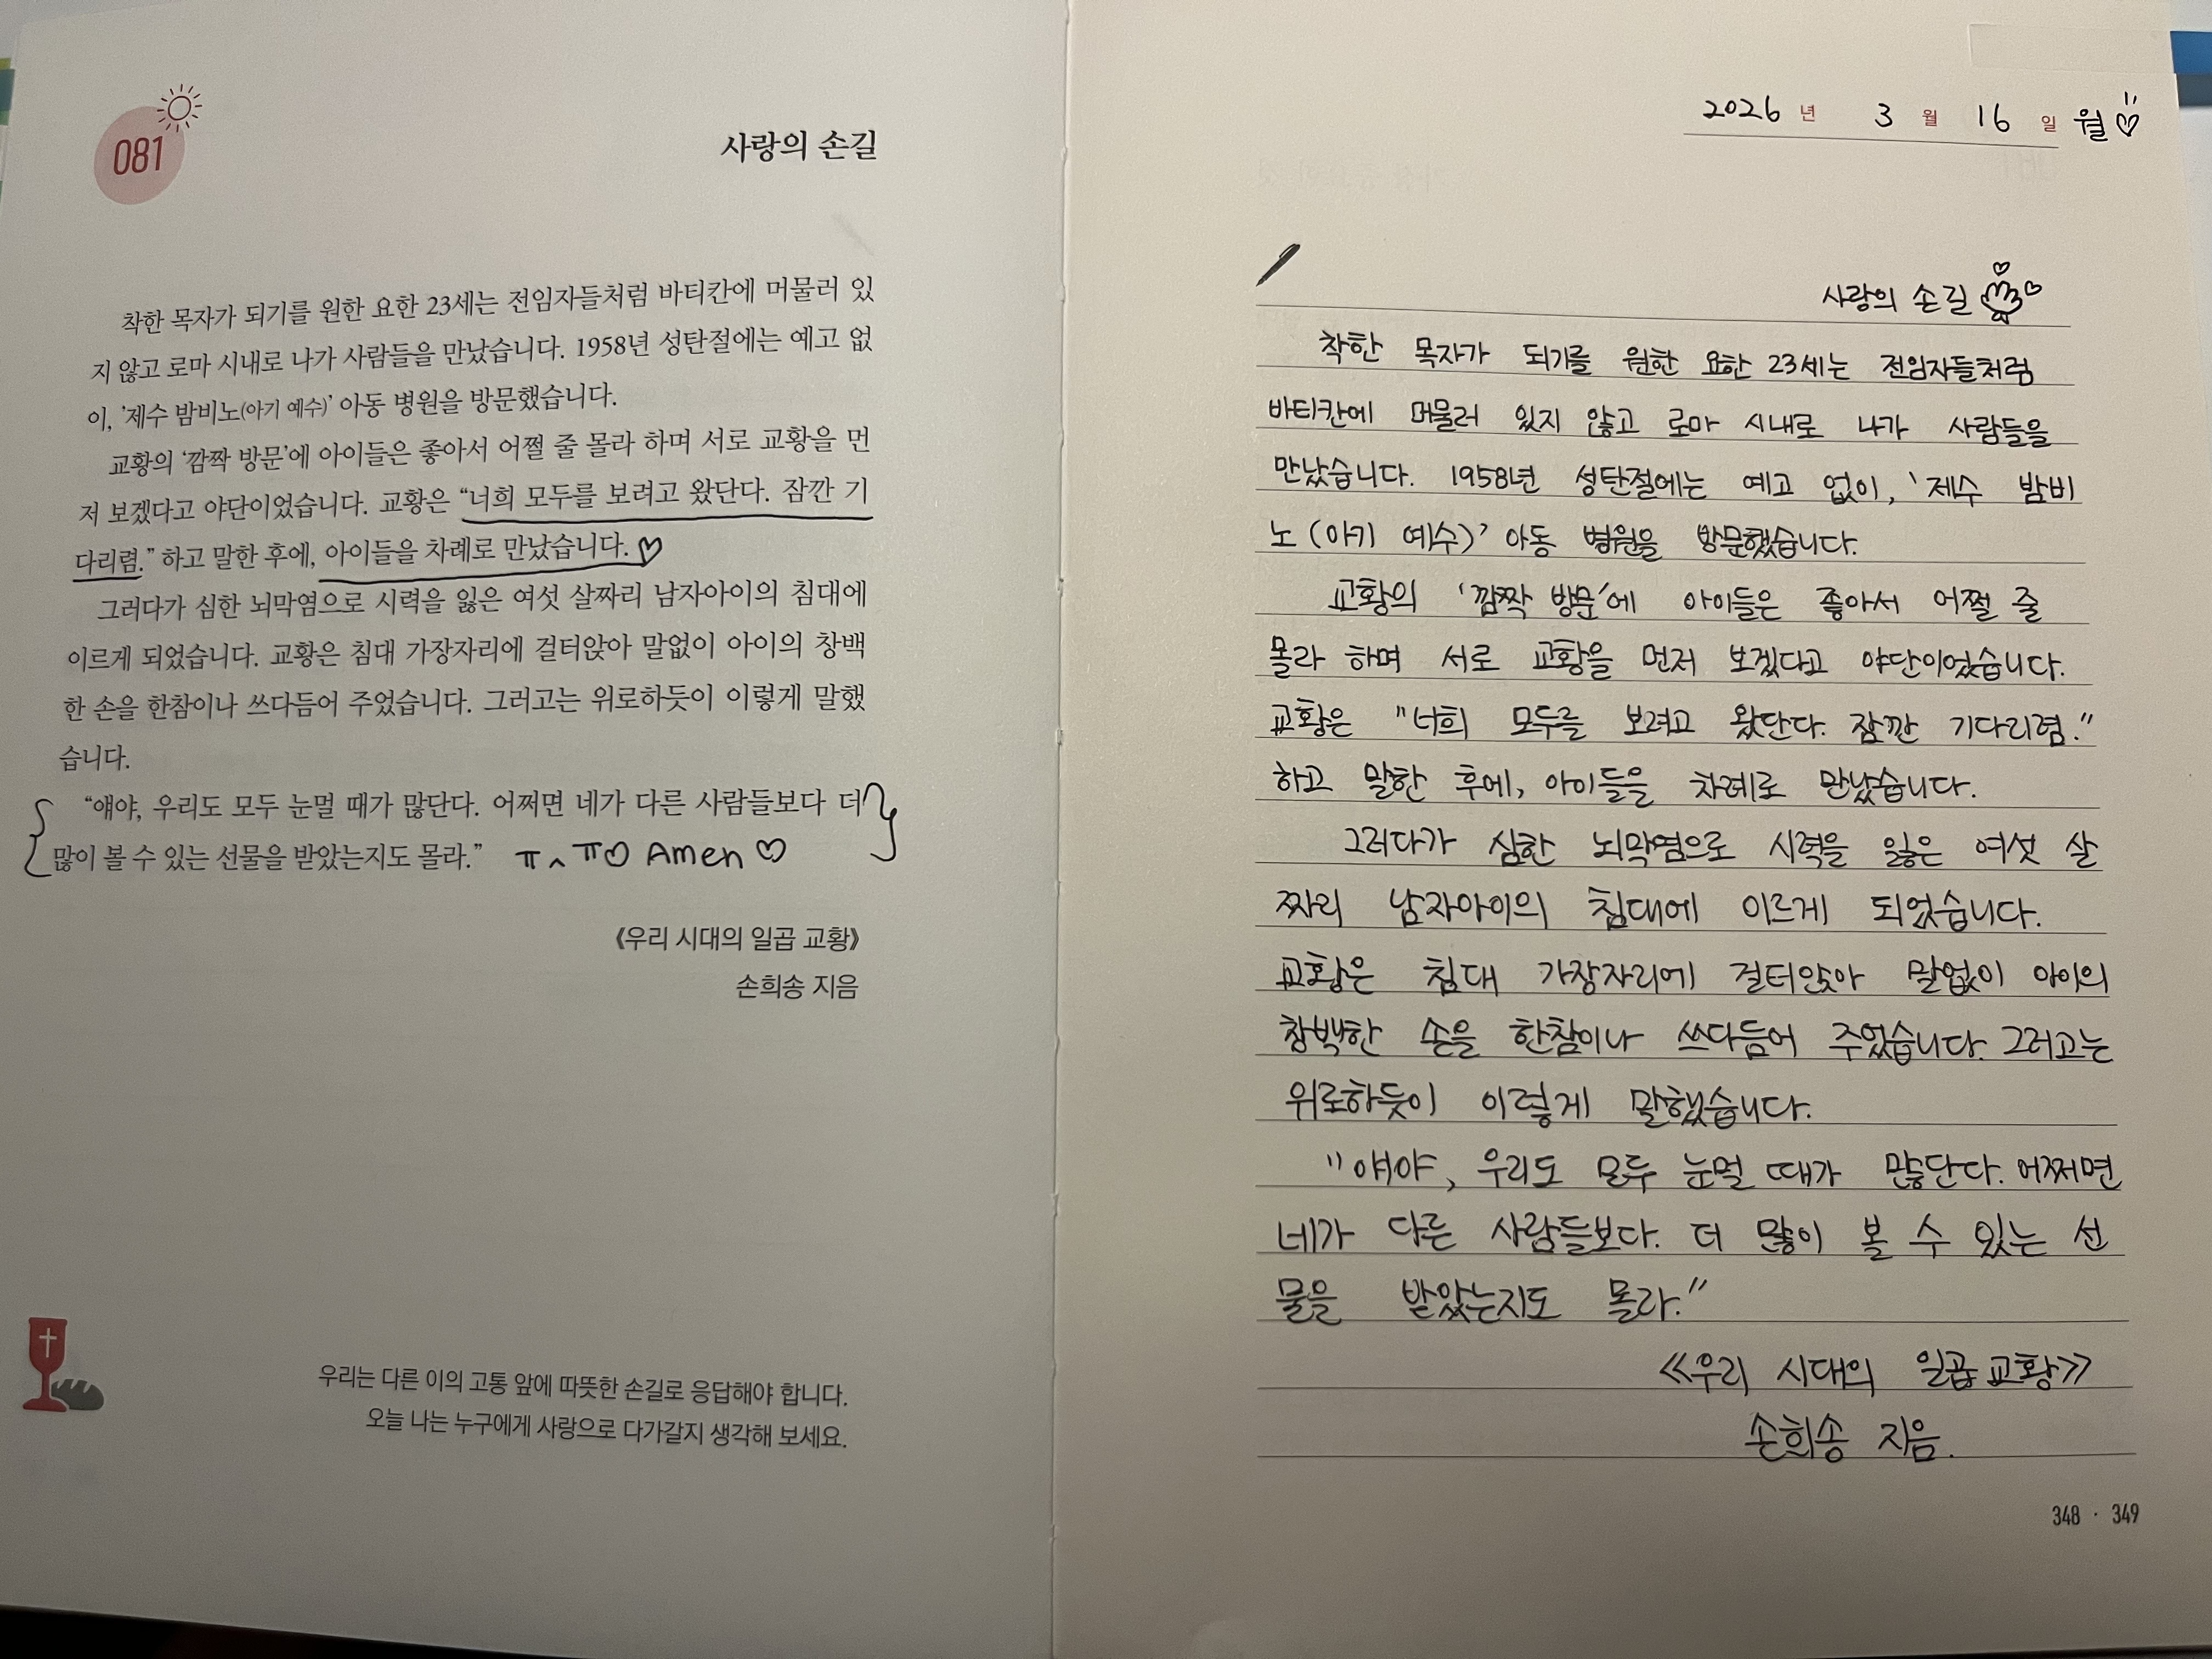 081
사랑의 손길
착한 목자가 되기를 원한 요한 23세는 전임자들처럼 바티칸에 머물러 있
지 않고 로마 시내로 나가 사람들을 만났습니다. 1958년 성탄절에는 예고 없
이, '제수 밤비노(아기 예수)' 아동 병원을 방문했습니다.
교황의 '깜짝 방문'에 아이들은 좋아서 어쩔 줄 몰라 하며 서로 교황을 먼
저 보겠다고 야단이었습니다. 교황은 "너희 모두를 보려고 왔단다. 잠깐 기
다리렴." 하고 말한 후에, 아이들을 차례로 만났습니다. ♡
그러다가 심한 뇌막염으로 시력을 잃은 여섯 살짜리 남자아이의 침대에
이르게 되었습니다. 교황은 침대 가장자리에 걸터앉아 말없이 아이의 창백
한 손을 한참이나 쓰다듬어 주었습니다. 그러고는 위로하듯이 이렇게 말했
습니다.
"얘야, 우리도 모두 눈멀 때가 많단다. 어쩌면 네가 다른 사람들보다 더
많이 볼 수 있는 선물을 받았는지도 몰라." ㅠㅅㅠ♡ Amen ♡
《우리 시대의 일곱 교황》
손희송 지음
우리는 다른 이의 고통 앞에 따뜻한 손길로 응답해야 합니다.
오늘 나는 누구에게 사랑으로 다가갈지 생각해 보세요.
2026 년 3 월 16 일 월♡
사랑의 손길
착한 목자가 되기를 원한 요한 23세는 전임자들처럼
바티칸에 머물러 있지 않고 로마 시내로 나가 사람들을
만났습니다. 1958년 성탄절에는 예고 없이, '제수 밤비
노 (아기 예수)' 아동 병원을 방문했습니다.
교황의 '깜짝 방문'에 아이들은 좋아서 어쩔 줄
몰라 하며 서로 교황을 먼저 보겠다고 야단이었습니다.
교황은 "너희 모두를 보려고 왔단다. 잠깐 기다리렴."
하고 말한 후에, 아이들을 차례로 만났습니다.
그러다가 심한 뇌막염으로 시력을 잃은 여섯 살
짜리 남자아이의 침대에 이르게 되었습니다.
교황은 침대 가장자리에 걸터앉아 말없이 아이의
창백한 손을 한참이나 쓰다듬어 주었습니다. 그러고는
위로하듯이 이렇게 말했습니다.
"얘야, 우리도 모두 눈멀 때가 많단다. 어쩌면
네가 다른 사람들보다. 더 많이 볼 수 있는 선
물을 받았는지도 몰라."
《우리 시대의 일곱 교황》
손희송 지음.
348 · 349